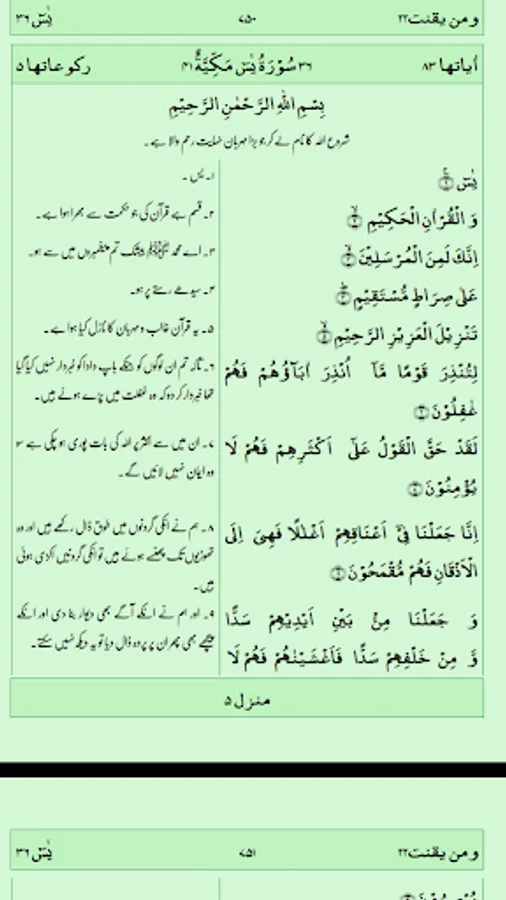 ومن يقنت٢٢ ٧٥٠ يٰسٓ ٣٦
اٰياتها ٨٣ ٣٦ سُوْرَةُ يٰسٓ مَكِّيَّةٌ ٤١ ركوعاتها ٥
بِسْمِ اللّٰهِ الرَّحْمٰنِ الرَّحِيْمِ
شروع اللہ کا نام لے کر جو بڑا مہربان نہایت رحم والا ہے۔
يٰسٓ ۚ﴿۱﴾
۱۔ یٰس۔
وَ الْقُرْاٰنِ الْحَكِيْمِ ۙ﴿۲﴾
۲۔ قسم ہے قرآن کی جو حکمت سے بھرا ہوا ہے۔
اِنَّكَ لَمِنَ الْمُرْسَلِيْنَ ۙ﴿۳﴾
۳۔ اے محمد ﷺ بیشک تم پیغمبروں میں سے ہو۔
عَلٰى صِرَاطٍ مُّسْتَقِيْمٍ ؕ﴿۴﴾
۴۔ سیدھے رستے پر ہو۔
تَنْزِيْلَ الْعَزِيْزِ الرَّحِيْمِ ۙ﴿۵﴾
۵۔ یہ قرآن غالب و مہربان کا نازل کیا ہوا ہے۔
لِتُنْذِرَ قَوْمًا مَّاۤ اُنْذِرَ اٰبَآؤُهُمْ فَهُمْ
غٰفِلُوْنَ ﴿۶﴾
۶۔ تاکہ تم ان لوگوں کو جنکے باپ دادا کو خبردار نہیں کیا گیا
تھا خبردار کر دو کہ وہ غفلت میں پڑے ہوئے ہیں۔
لَقَدْ حَقَّ الْقَوْلُ عَلٰۤى اَكْثَرِهِمْ فَهُمْ لَا
يُؤْمِنُوْنَ ﴿۷﴾
۷۔ ان میں سے اکثر پر اللہ کی بات پوری ہو چکی ہے سو
وہ ایمان نہیں لائیں گے۔
اِنَّا جَعَلْنَا فِيْۤ اَعْنَاقِهِمْ اَغْلٰلًا فَهِيَ اِلَى
الْاَذْقَانِ فَهُمْ مُّقْمَحُوْنَ ﴿۸﴾
۸۔ ہم نے انکی گردنوں میں طوق ڈال رکھے ہیں اور وہ
ٹھوڑیوں تک پھنسے ہوئے ہیں تو انکی گردنیں اکڑی ہوئی
ہیں۔
وَ جَعَلْنَا مِنْۢ بَيْنِ اَيْدِيْهِمْ سَدًّا
وَّ مِنْ خَلْفِهِمْ سَدًّا فَاَغْشَيْنٰهُمْ فَهُمْ لَا
۹۔ اور ہم نے انکے آگے بھی دیوار بنا دی اور انکے
پیچھے بھی پھر ان پر پردہ ڈال دیا تو یہ دیکھ نہیں سکتے۔
منزل ۵
ومن يقنت٢٢ ٧٥١ يٰسٓ ٣٦